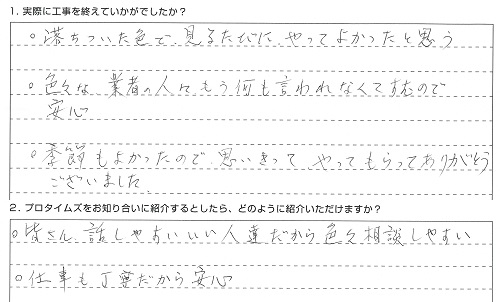 1. 実際に工事を終えていかがでしたか？
○落ちついた色で、見るたびに、やってよかったと思う
○色々な業者の人々にもう何も言われなくてすむので
安心
○季節もよかったので、思いきって、やってもらってありがとう
ございました。
2. プロタイムズをお知り合いに紹介するとしたら、どのように紹介いただけますか？
○皆さん、話しやすいいい人達だから色々相談しやすい
○仕事も丁寧だから安心